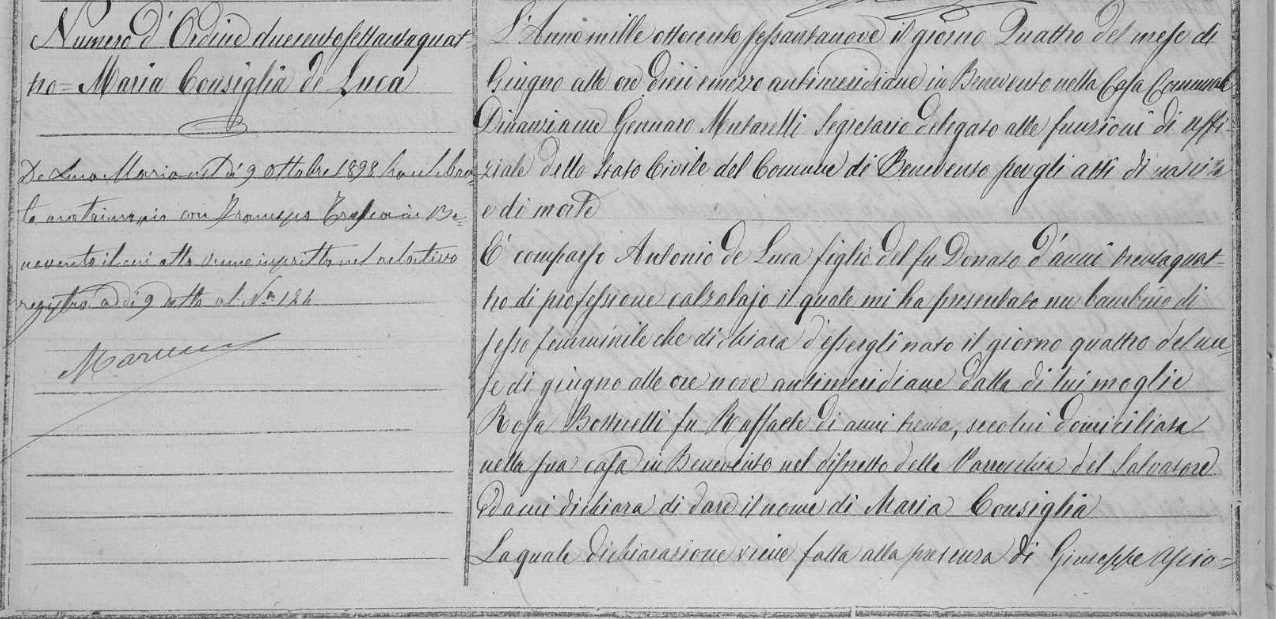 Numero d'Ordine duecentosettantaquat-
tro= Maria Consiglia de Luca
De Luca Maria addì 9 ottobre 1898 ha celebra-
to matrimonio con in Be-
nevento il cui atto venne inscritto nel relativo
registro addì 9 detto al N.º 124
L'Anno mille ottocento sessantanove il giorno Quattro del mese di
Giugno alle ore dieci e mezzo antimeridiane in Benevento nella Casa Comunale
Dinanzi a me Gennaro Mutarelli Segretario delegato alle funzioni di Uffi-
ziale dello Stato Civile del Comune di Benevento per gli atti di nascita
e di morte
E' comparso Antonio de Luca figlio del fu Donato d'anni trentaquat-
tro di professione calzolajo il quale mi ha presentato un bambino di
sesso femminile che dichiara d'essergli nato il giorno quattro del me-
se di giugno alle ore nove antimeridiane dalla di lui moglie
Rosa Botticelli fu Raffaele di anni trenta, secolui domiciliata
nella sua casa in Benevento nel distretto della Parrocchia del Salvatore
Ed a cui dichiara di dare il nome di Maria Consiglia
La quale dichiarazione viene fatta alla presenza di Giuseppe